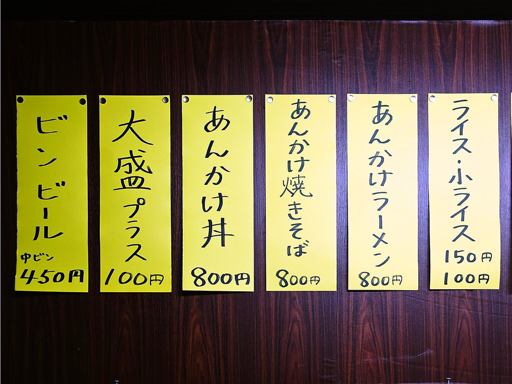 ライス・小ライス
150円
100円
あんかけラーメン
800円
あんかけ焼きそば
800円
あんかけ丼
800円
大盛プラス
100円
ビンビール
中ビン
450円